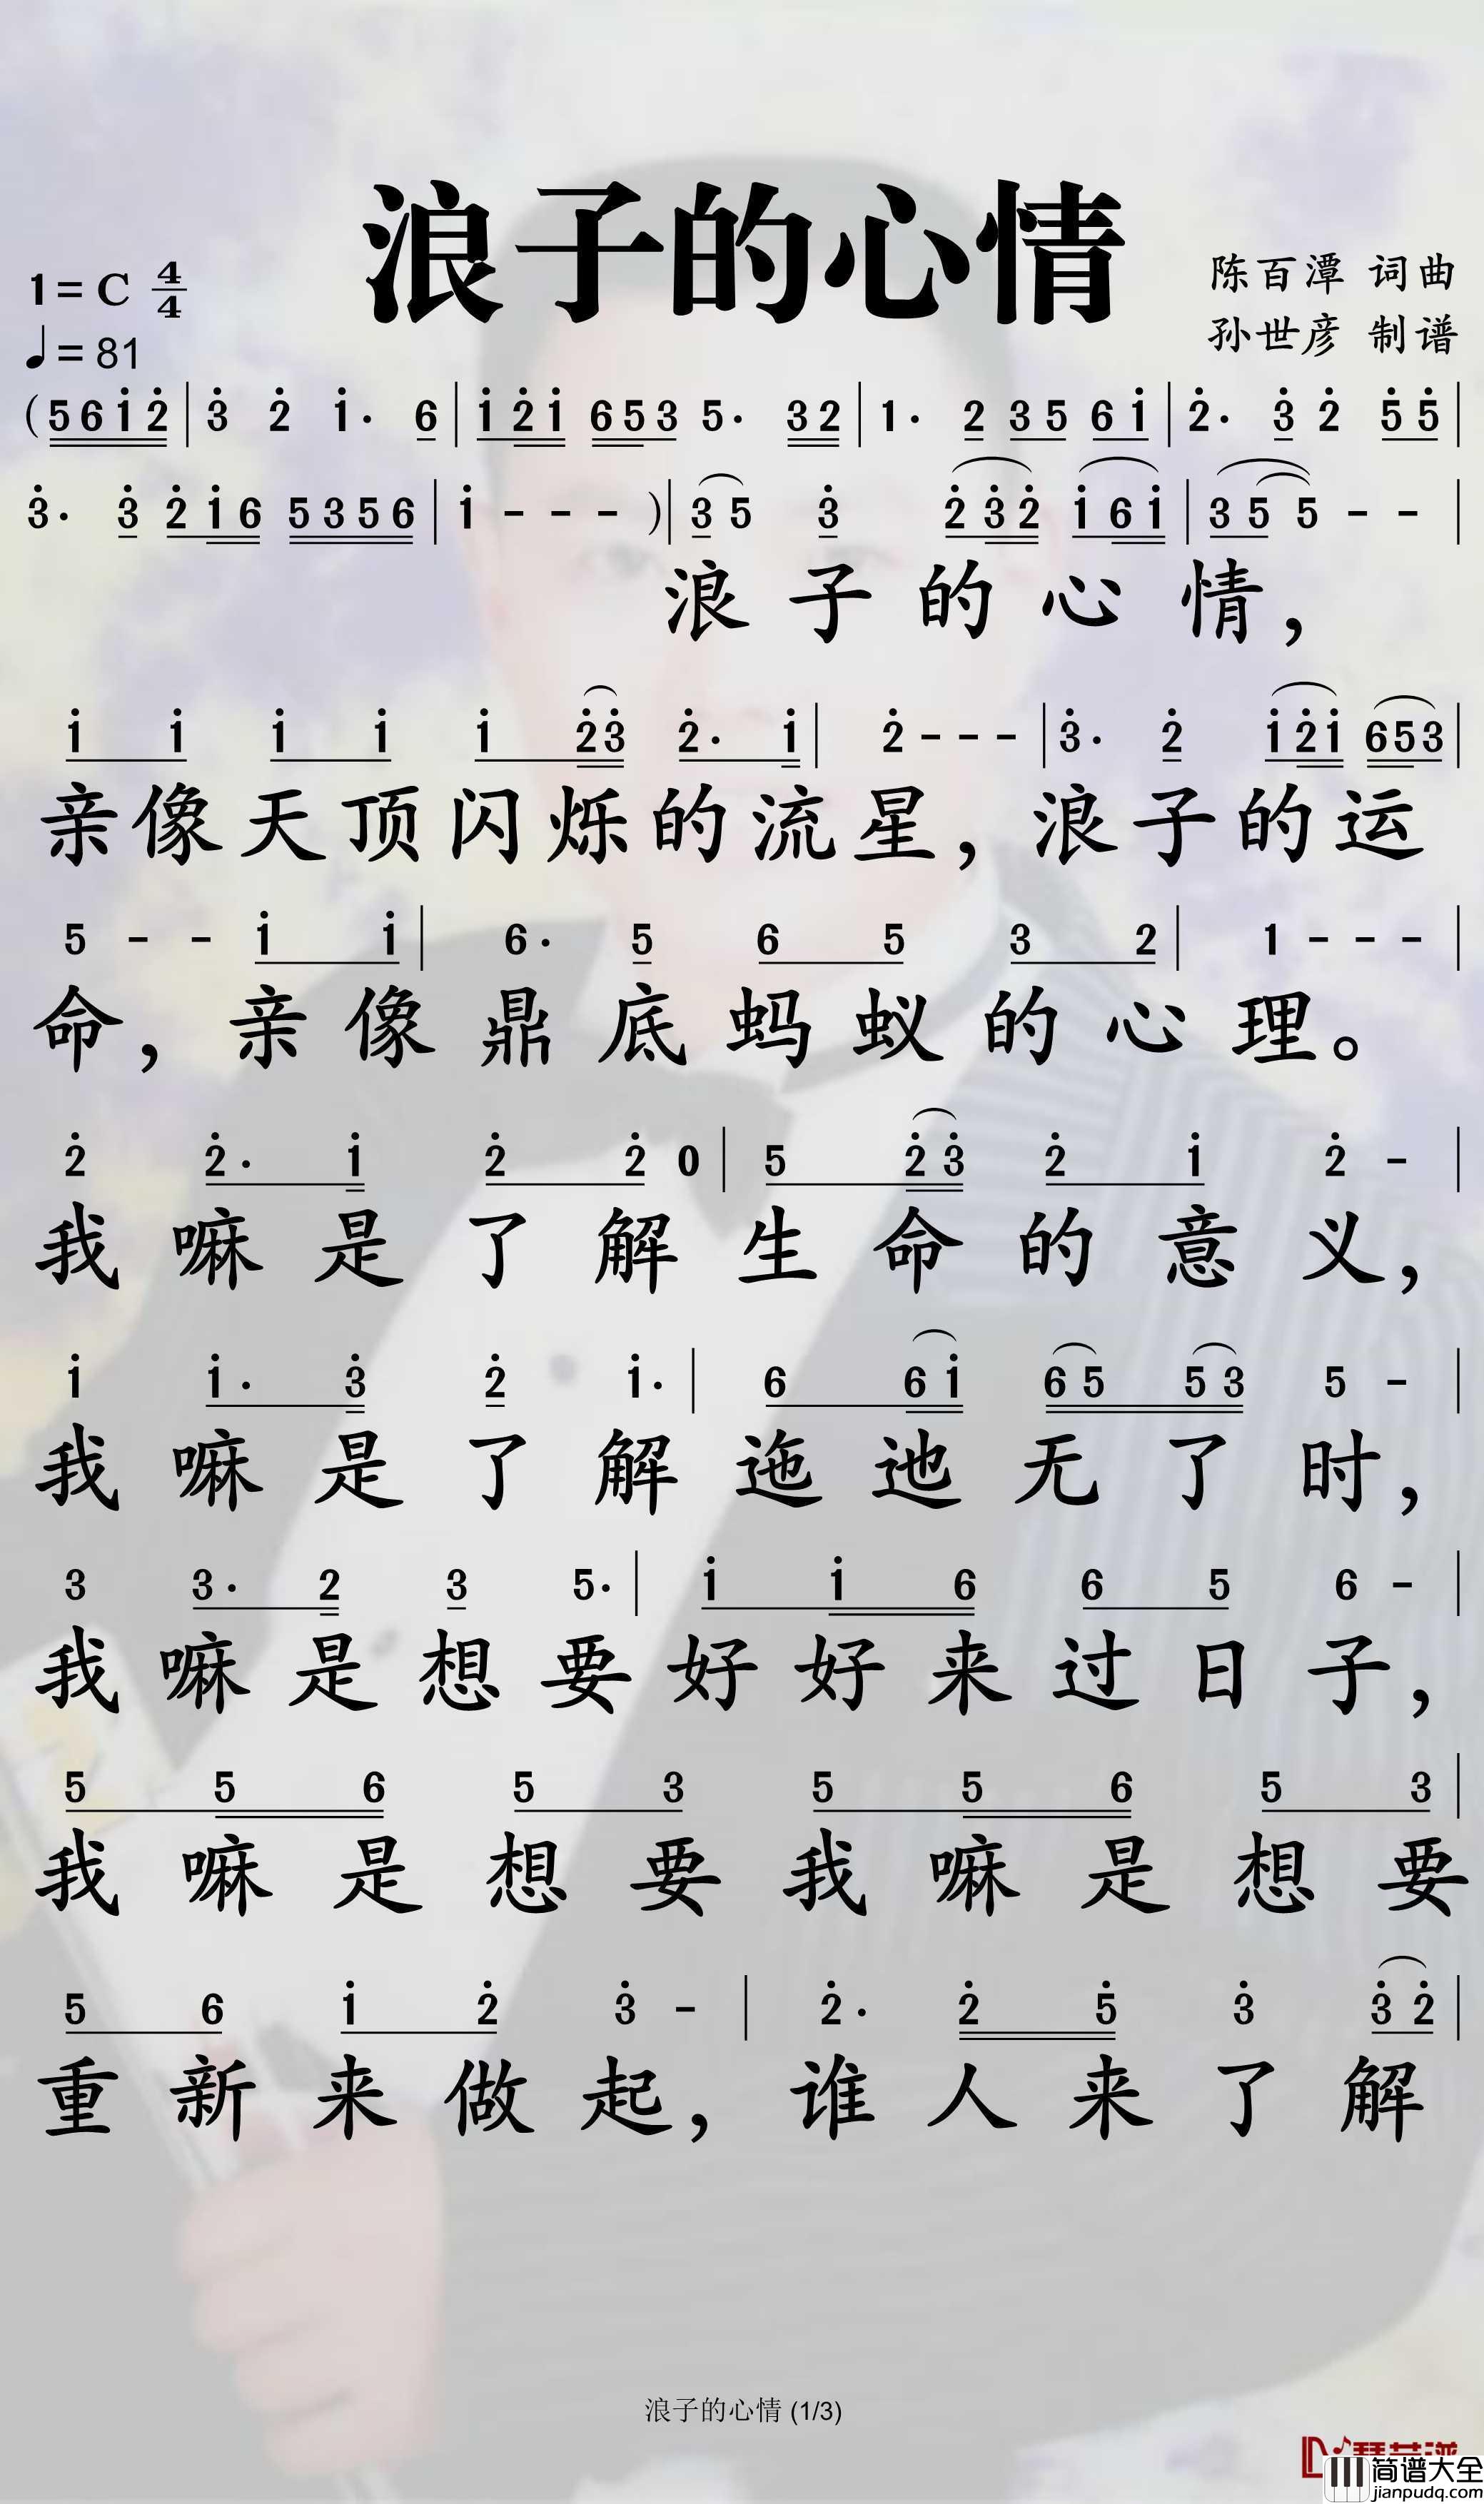 浪子的心情
1=C 4/4
陈百潭 词曲
♩=81
孙世彦 制谱
(561̇2̇|3̇ 2̇ 1̇· 6|1̇2̇1̇ 653 5· 32|1· 2 35 61̇|2̇· 3̇ 2̇ 5̇5̇|
3̇· 3̇ 2̇1̇6 5356|1̇ - - - )|35 3̇ 2̇3̇2̇ 1̇61̇|35 5 - -|
浪子的心情，
1̇ 1̇ 1̇ 1̇ 1̇ 2̇3̇ 2̇· 1̇|2̇ - - -|3̇· 2̇ 1̇2̇1̇ 653|
亲像天顶闪烁的流星，浪子的运
5 - - 1̇ 1̇|6· 5 6 5 3 2|1 - - -|
命，亲像鼎底蚂蚁的心理。
2̇ 2̇· 1̇ 2̇ 2̇ 0|5 2̇3̇ 2̇ 1̇ 2̇ -|
我嘛是了解生命的意义，
1̇ 1̇· 3̇ 2̇ 1̇·|6 61̇ 65 53 5 -|
我嘛是了解迤迌无了时，
3 3· 2 3 5·|1̇ 1̇ 6 6 5 6 -|
我嘛是想要好好来过日子，
5 5 6 5 3 5 5 6 5 3|
我嘛是想要我嘛是想要
5 6 1̇ 2̇ 3̇ -|2̇· 2̇ 5̇ 3̇ 3̇2̇|
重新来做起，谁人来了解
浪子的心情 (1/3)
简谱大全
jianpudq.com